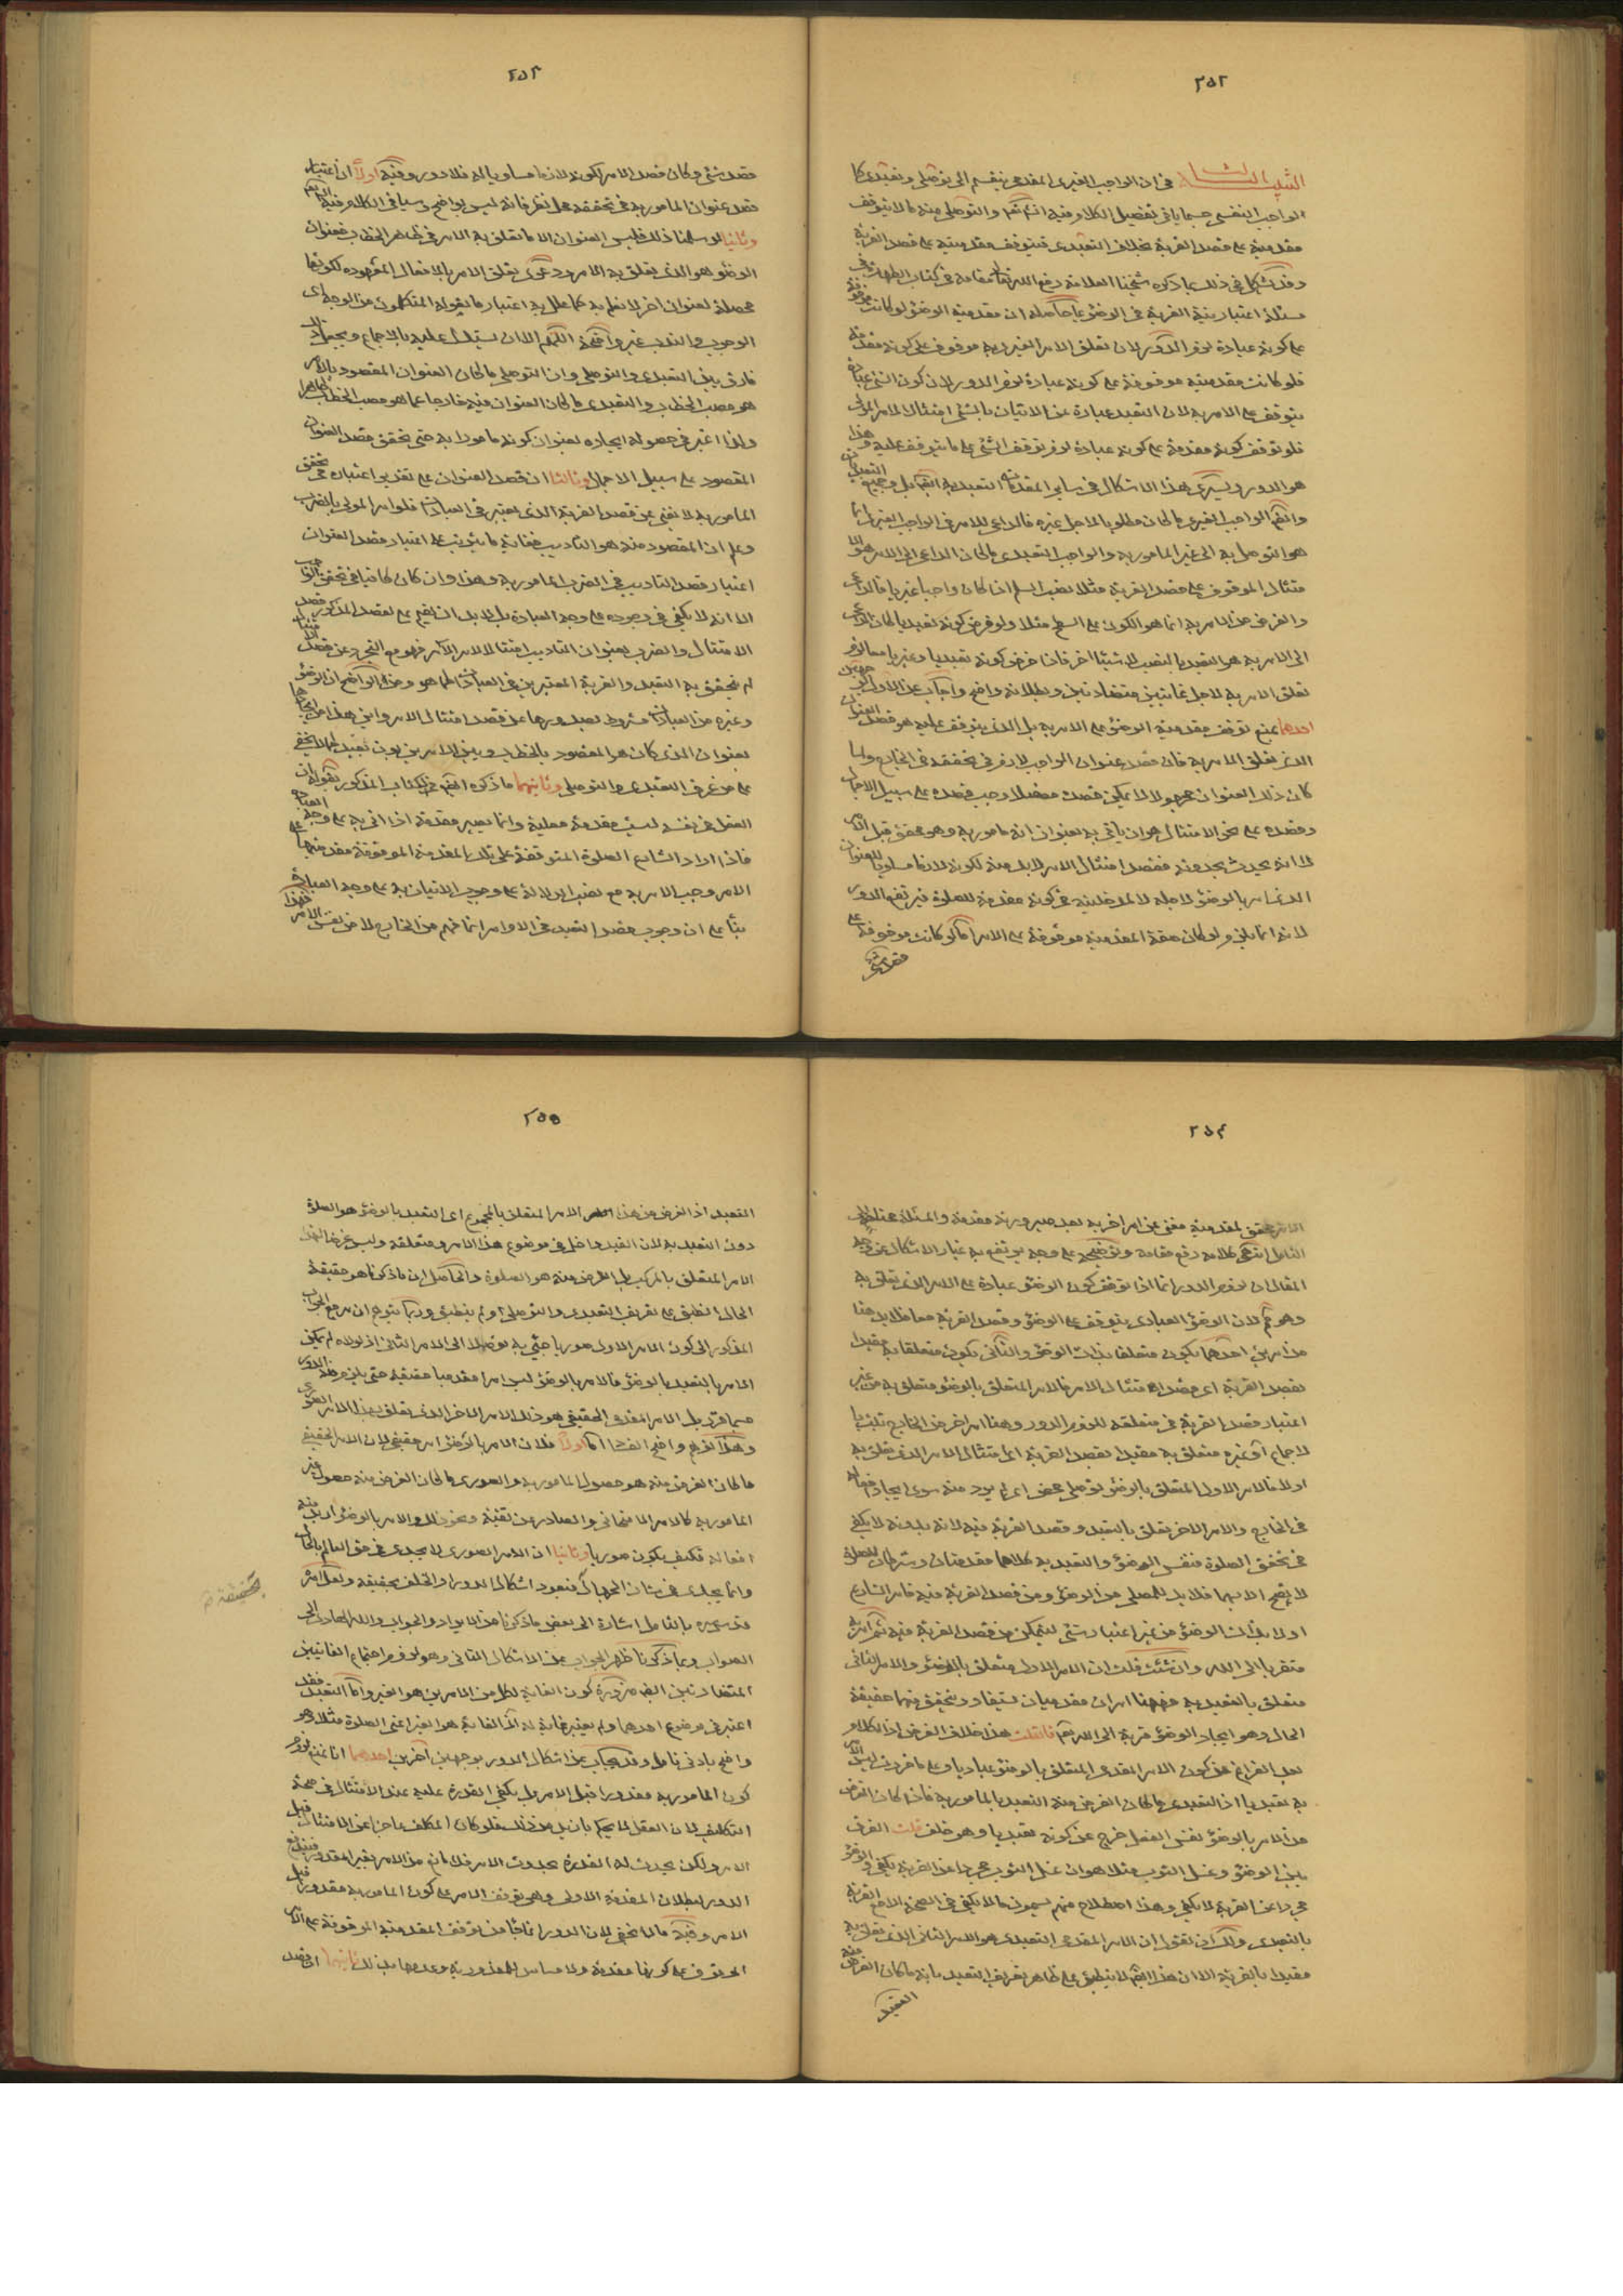 ٢٥٢
التنبيه الثالث في ان الواجب الغيرى المقدمى ينقسم الى توصلى وتعبدى كا
الواجب النفسى حسبما ياتى تفصيل الكلام فيه انش تعم والتوصلى منه ما لا يتوقف
مقدميته على قصد القربة بخلاف التعبدى فيتوقف مقدميته على قصد القربة
وقد يشكل في ذلك بما ذكره شيخنا العلامة رفع الله تعا مقامه في كتاب الطهارة في
مسئلة اعتبار نية القربة في الوضؤ بما حاصله ان مقدمية الوضؤ لو كانت موقوفة
على كونه عبادة لزم الدور لان تعلق الامر الغيرى به موقوف على كونه مقدمة
فلو كانت مقدميته موقوفة على كونه عبادة لزم الدور لان كون الشئ عبادة
يتوقف على الامر به لان التعبد عبارة عن الاتيان بالشئ امتثالا لامر المولى
فلو توقف كونه مقدمة على كونه عبادة لزم توقف الشئ على ما يتوقف عليه وهذا
هو الدور ويسرى هذا الاشكال في ساير المقدمات التعبدية
وايضم الواجب الغيرى ما كان مطلوبا لاجل غيره فالداعى للامر في الواجب الغيرى انما
هو التوصل به الى غير المامور به والواجب التعبدى ما كان الداعى الى الامر هو الا
متثال الموقوف على قصد القربة مثلا نصب السلم اذا كان واجبا غيريا فالداعى
والغرض من الامر به انما هو الكون على السطح مثلا ولو فرض كونه تعبديا كان الداعى
الى الامر به هو التعبد بالنصب لا شيئا اخر فاذا فرض كونه تعبديا وغيريا معا لزم
تعلق الامر به لاجل غايتين متضادتين وبطلانه واضح واجاب عن الاول بوجهين
احدهما بمنع توقف مقدمية الوضؤ على الامر به بل الذى يتوقف عليه هو قصد العنوان
الذى تعلق الامر به فان قصد عنوان الواجب لازم في تحققه في الخارج ولما
كان ذلك العنوان مجهولا لا يمكن قصده مفصلا وجب قصده على سبيل الاجمال
وقصده على نحو الامتثال هو ان ياتى به بعنوان انه مامور به وهو محقق قبل الامر
لا انه يحدث بحدوثه فقصد امتثال الامر لابد منه لكونه لازما مساويا للعنوان
الذى امر بالوضؤ لاجله لا لمدخليته في كونه مقدمة للصلوة فيرتفع الدور
لانه انما يلزم لو كان صفة المقدمية موقوفة على الامر اما لو كانت موقوفة على
قصد شئ
٢٥٣
قصد شئ وكان قصد الامر لكونه لازما مساويا له فلا دور وفيه اولا ان اعتبار
قصد عنوان المامور به في تحققه محل نظر فانه ليس بواضح وسياتى الكلام فيه
وثانيا لو سلمنا ذلك فليس العنوان الا ما تعلق به الامر في ظاهر الخطاب فعنوان
الوضؤ هو الذى تعلق به الامر ودعوى تعلق الامر بالافعال المقصوده لكونها
محصلة لعنوان اخر لا نعلم به كما علل به اعتبار ما يقوله المتكلمون من الوجه اى
الوجوب والندب غير واضحة اللهم الا ان يستدل عليه بالاجماع ويجعل ذلك
فارق بين التعبدى والتوصلى وان التوصلى ما كان العنوان المقصود بالامر
هو مصب الخطاب والتعبدى ما كان العنوان فيه خارجا عما هو مصب الخطاب ظاهرا
ولذا اعتبر في حصوله ايجاده بعنوان كونه مامورا به حتى يتحقق قصد العنوان
المقصود على سبيل الاجمال وثالثا ان قصد العنوان على تقدير اعتباره في تحقق
المامور به لا يغنى عن قصد القربة الذى يعتبر في العبادات فلو امر المولى بالضرب
وعلم ان المقصود منه هو التاديب فغاية ما يترتب على اعتبار قصد العنوان
اعتبار قصد التاديب في الضرب المامور به وهذا وان كان كافيا في تحقق الواجب
الا انه لا يكفى في وجوده على وجه العبادة بل لابد ان يضم على القصد المذكور قصد
الامتثال والضرب بعنوان التاديب امتثالا لامر الآمر فهو مع التجرد عن قصد الامتثال
لم يتحقق به التعبد والقربة المعتبرين في العبادات كما هو ومن الواضح ان الوضؤ
وغيره من العبادات مشروط بصدورها عن قصد امتثال الامر واين هذا من ايجادها
بعنوان الذى كان هو المقصود بالخطاب وبين الامرين بون بعيد كما لا يخفى
على من عرف التعبدى والتوصلى وثانيهما ما ذكره ايضم في الكتاب المذكور بقوله ان
الفعل في نفسه ليس مقدمة فعلية وانما يصير مقدمة اذا اتى به على وجه العبادة
فاذا اراد الشارع الصلوة المتوقفة على تلك المقدمة الموقوفة مقدميتها على
الامر وجب الامر به مع نصب الدلالة على وجوب الاتيان به على وجه العبادة
بنأ على ان وجوب قصد التعبد في الاوامر انما فهم من الخارج لا من نفس الامر فهذا
٢٥٤
الامر محقق لمقدميته مغن عن امر اخر به بعد صيرورته مقدمة والمسئلة محتاجة الى
التامل انتهى كلامه رفع مقامه وتوضيحه على وجه يرتفع به غبار الاشكال عن وجه
المقال ان لزوم الدور انما اذا توقف كون الوضؤ عبادة على الامر الذى تعلق به
وهو تم لان الوضؤ العبادى يتوقف على الوضؤ وقصد القربة معا فلابد هنا
من امرين احدهما يكون متعلقا بذات الوضؤ والثانى يكون متعلقا به مقيدا
بقصد القربة اى بقصد امتثال الامر فالامر المتعلق بالوضؤ متعلق به من غير
اعتبار قصد القربة في متعلقه للزوم الدور وهنا امر اخر في الخارج ثابت با
لاجماع او غيره متعلق به مقيدا بقصد القربة اى امتثال الامر الذى تعلق به
اولا فالامر الاول المتعلق بالوضؤ توصلى محض اى لم يرد منه سوى ايجاد افعاله
في الخارج والامر الاخر يتعلق بالتعبد وقصد القربة فيه لانه بدونه لا يكفى
في تحقق الصلوة فنفس الوضؤ والتعبد به كلاهما مقدمتان وشرطان للصلوة
لا يصح الا بهما فلابد للمصلى من الوضؤ ومن قصد القربة فيه فامر الشارع
اولا بذات الوضؤ من غير اعتبار شئ ليتمكن من قصد القربة فيه ثم امر به
متقربا الى الله وان شئت قلت ان الامر الاول متعلق بالوضؤ والامر الثانى
متعلق بالتعبد به فههنا امران مقدميان يستفاد ويتحقق منهما حقيقة
الحال وهو ايجاد الوضؤ قربة الى الله تعم فان قلت هذا خلاف الفرض اذ الكلام
بعد الفراغ عن كون الامر المقدمى المتعلق بالوضؤ عباديا وعلى ما قررت ليس الامر
به تعبديا اذ التعبدى ما كان الغرض منه التعبد بالمامور به فاذا كان الغرض
من الامر بالوضؤ نفس الفعل خرج عن كونه تعبديا وهو خلف قلت الفرق
بين الوضؤ وغسل الثوب مثلا هو ان غسل الثوب مجردا عن القربة يكفى والوضؤ
مجردا عن القربة لا يكفى وهذا اصطلاح منهم يسمون ما لا يكفى في الصحة الا مع القربة
بالتعبدى ولك ان تقول ان الامر المقدمى التعبدى هو الامر الثانى الذى تعلق به
مقيدا بالقربة الا ان هذا ايضم لا ينطبق على ظاهر تعريف التعبد بانه ما كان الغرض منه
التعبد
٢٥٥
التعبد اذ الغرض من هذا الامر المتعلق بالمجموع اى التعبد بالوضؤ هو الصلوة
دون التعبد به لان القيد داخل في موضوع هذا الامر ومتعلقه وليس غرضا لهذا
الامر المتعلق بالمركب بل الغرض منه هو الصلوة والحاصل ان ما ذكرنا هو حقيقة
الحال انطبق على تعريف التعبدى والتوصلى او لم ينطبق وربما يتوهم ان مرجع الجواب
المذكور الى كون الامر الاول صوريا جئ به توصلا الى الامر الثانى اذ لولاه لم يمكن
الامر بالتعبد بالوضؤ فالامر بالوضؤ ليس امرا مقدميا حقيقة حتى يلزم الدور
حسبما قرر بل الامر المقدمى الحقيقى هو ذلك الامر الاخر الذى تعلق بهذا الامر الصورى
وهذا توهم واضح الفساد اما اولا فلان الامر بالوضؤ امر حقيقى لان الامر الحقيقى
ما كان الغرض منه هو حصول المامور به والصورى ما كان الغرض منه حصول غير
المامور به كالامر الامتحانى والصادر عن تقية ونحو ذلك والامر بالوضؤ اريد منه
افعاله فكيف يكون صوريا وثانيا ان الامر الصورى لا يجدى في حق العالم بالحال
وانما يجدى في شان الجهال فيعود اشكال الدور او الخلف بحقيقة ولعل امره
قدس سره بالتامل اشارة الى بعض ما ذكرنا من الايراد والجواب والله الهادى الى
الصواب وبما ذكرنا ظهر الجواب عن الاشكال الثانى وهو لزوم اجتماع الغايتين
المتضادتين ايضا ضرورة كون الغاية لكل من الامرين هو الغير واما التعبد فقد
اعتبر في موضوع احدهما ولم يعتبر غاية له انما الغاية هو الغير اعنى الصلوة مثلا وهو
واضح بادنى تامل وقد يجاب عن اشكال الدور بوجهين آخرين احدهما انا نمنع لزوم
كون المامور به مقدورا قبل الامر بل يكفى القدرة عليه عند الامتثال في صحة
التكليف لان العقل لا يحكم بازيد من ذلك فلو كان المكلف عاجزا عن الامتثال قبل
الامر ولكن يحدث له القدرة بحدوث الامر فلا مانع من الامر بغير المقدور فيندفع
الدور لبطلان المقدمة الاولى وهى توقف الامر على كون المامور به مقدورا قبل
الامر وفيه ما لا يخفى لان الدور انما نشأ من توقف المقدمية الموقوفة على الامر
الموقوف على كونها مقدمة ولا مساس للمقدورية وعدمها بذلك ثانيهما ان قصد